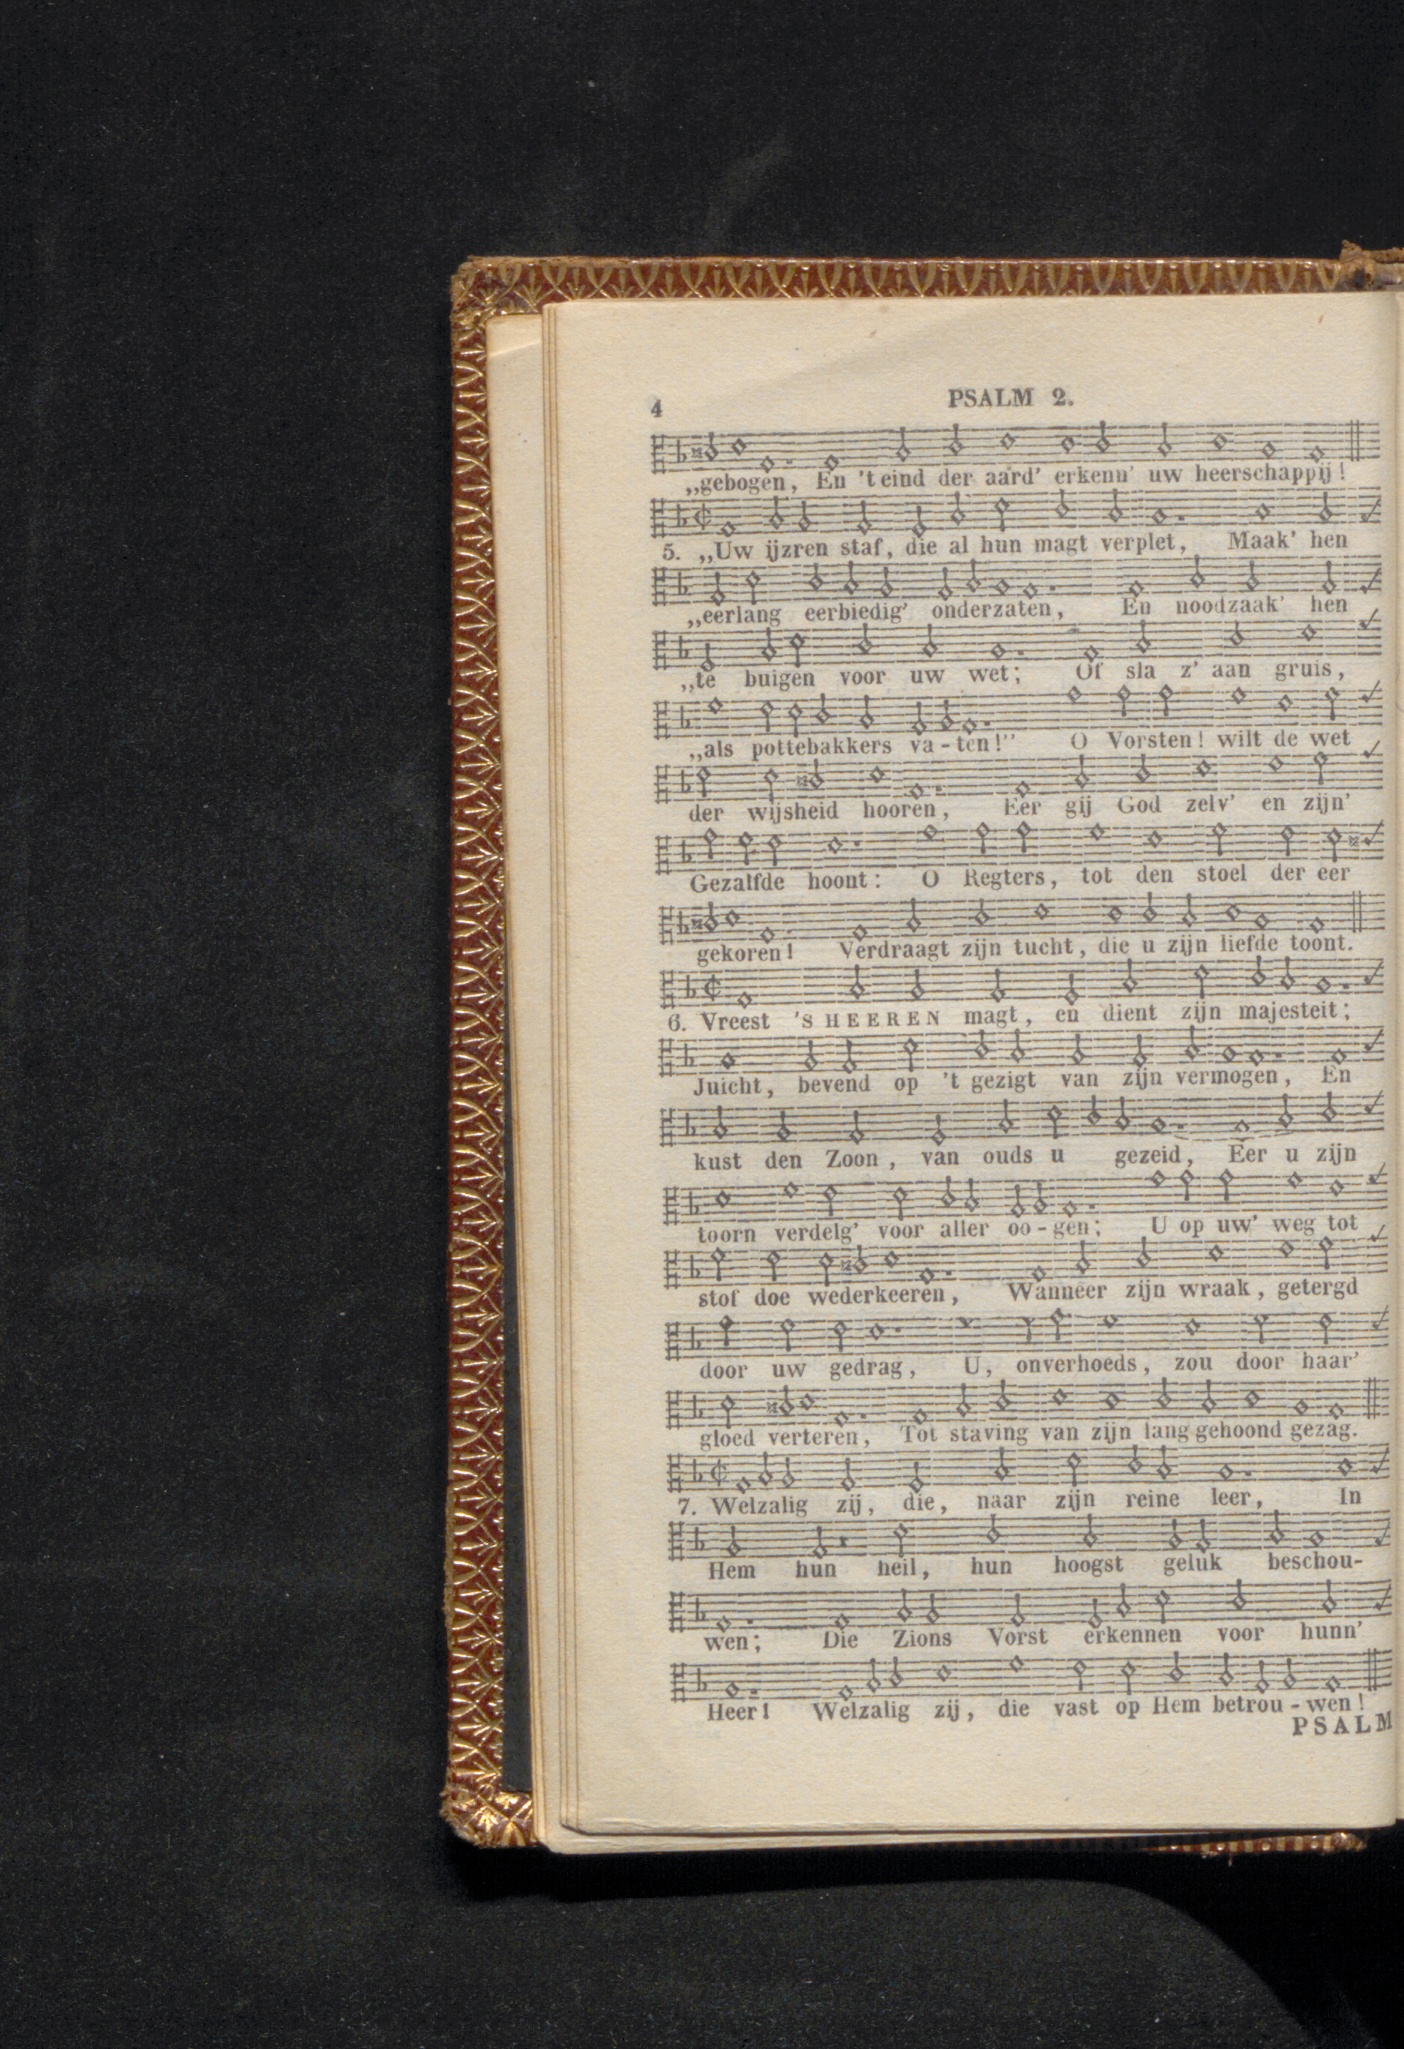 4
PSALM 2.
„gebogen, En 't eind der aard' erkenn' uw heerschappij!
5. „Uw ijzren staf, die al hun magt verplet, Maak' hen
„eerlang eerbiedig' onderzaten, En noodzaak' hen
„te buigen voor uw wet; Of sla z' aan gruis,
„als pottebakkers va-ten!" O Vorsten! wilt de wet
der wijsheid hooren, Eer gij God zelv' en zijn'
Gezalfde hoont: O Regters, tot den stoel der eer
gekoren! Verdraagt zijn tucht, die u zijn liefde toont.
6. Vreest 'S HEEREN magt, en dient zijn majesteit;
Juicht, bevend op 't gezigt van zijn vermogen, En
kust den Zoon, van ouds u gezeid, Eer u zijn
toorn verdelg' voor aller oo-gen; U op uw' weg tot
stof doe wederkeeren, Wanneer zijn wraak, getergd
door uw gedrag, U, onverhoeds, zou door haar'
gloed verteren, Tot staving van zijn lang gehoond gezag.
7. Welzalig zij, die, naar zijn reine leer, In
Hem hun heil, hun hoogst geluk beschou-
wen; Die Zions Vorst erkennen voor hunn'
Heer! Welzalig zij, die vast op Hem betrou-wen!
PSALM